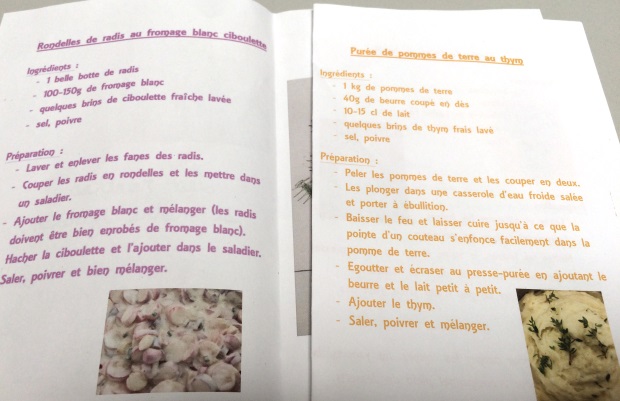 Rondelles de radis au fromage blanc ciboulette
Ingrédients :
- 1 belle botte de radis
- 100-150g de fromage blanc
- quelques brins de ciboulette fraîche lavée
- sel, poivre
Préparation :
- Laver et enlever les fanes des radis.
- Couper les radis en rondelles et les mettre dans
un saladier.
- Ajouter le fromage blanc et mélanger (les radis
doivent être bien enrobés de fromage blanc).
Hacher la ciboulette et l'ajouter dans le saladier.
Saler, poivrer et bien mélanger.
Purée de pommes de terre au thym
Ingrédients :
- 1 kg de pommes de terre
- 40g de beurre coupé en dés
- 10-15 cl de lait
- quelques brins de thym frais lavé
- sel, poivre
Préparation :
- Peler les pommes de terre et les couper en deux.
- Les plonger dans une casserole d'eau froide salée
et porter à ébullition.
- Baisser le feu et laisser cuire jusqu'à ce que la
pointe d'un couteau s'enfonce facilement dans la
pomme de terre.
- Egoutter et écraser au presse-purée en ajoutant le
beurre et le lait petit à petit.
- Ajouter le thym.
- Saler, poivrer et mélanger.